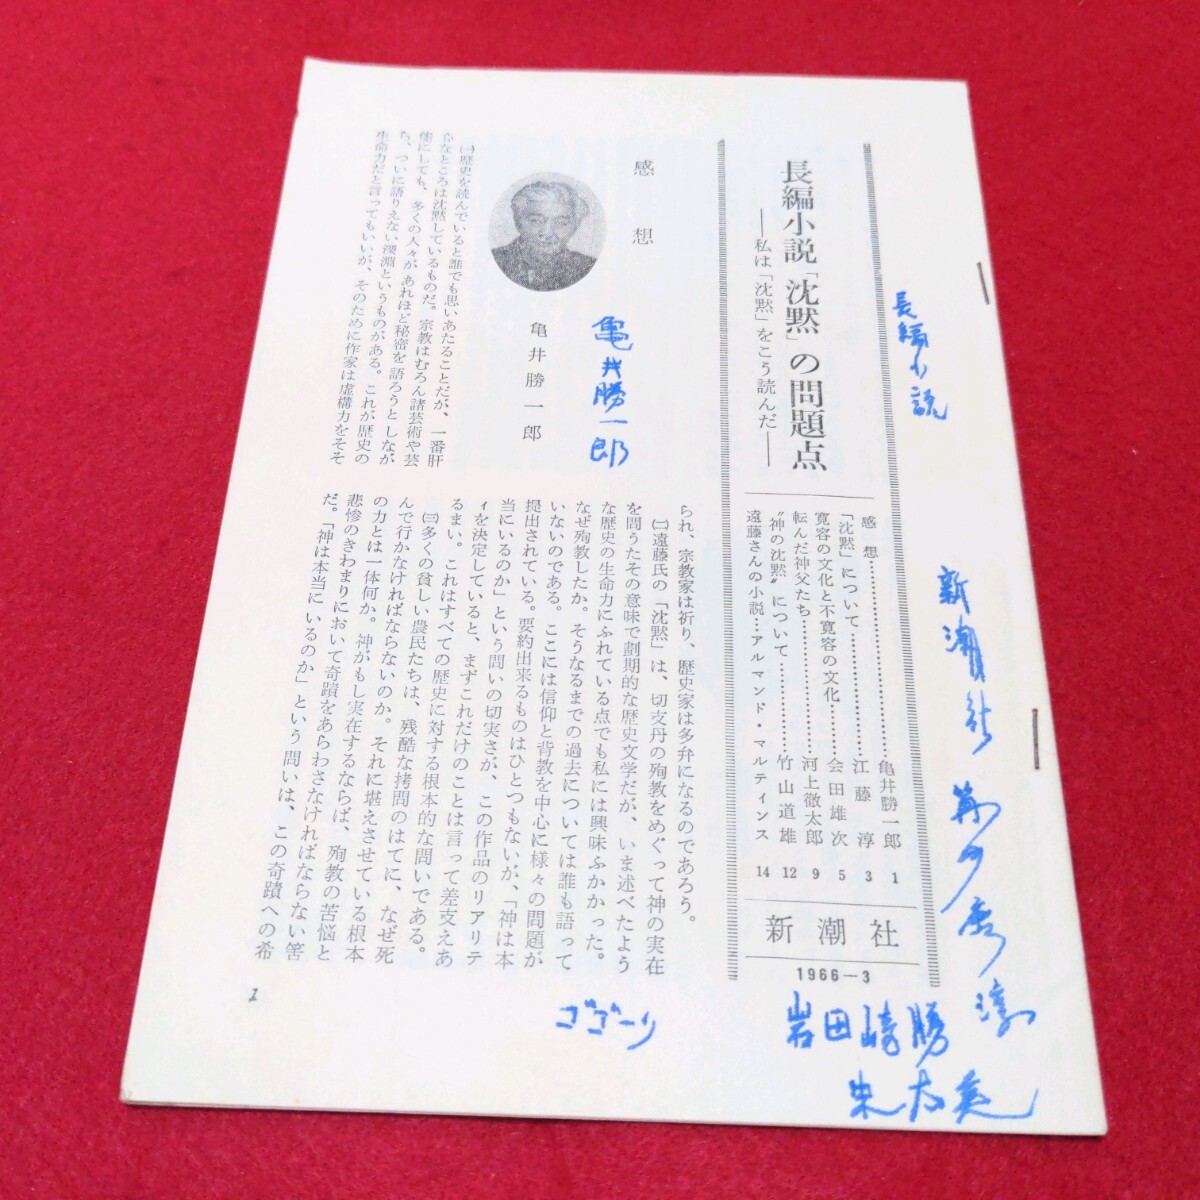 長編小説「沈黙」の問題点
―私は「沈黙」をこう読んだ―
感想……………………亀井勝一郎 1
「沈黙」について……………江藤淳 3
寛容の文化と不寛容の文化……会田雄次 5
転んだ神父たち……………河上徹太郎 9
〝神の沈黙〟について………竹山道雄 12
遠藤さんの小説…アルマンド・マルティンス 14
新潮社
1966―3
感想
亀井勝一郎
㈠歴史を読んでいると誰でも思いあたることだが、一番肝
心なところは沈黙しているものだ。宗教はむろん諸芸術や芸
能にしても、多くの人々があれほど秘密を語ろうとしなが
ら、ついに語りえない深淵というものがある。これが歴史の
生命力だと言ってもいいが、そのために作家は虚構力をそそ
られ、宗教家は祈り、歴史家は多弁になるのであろう。
㈡遠藤氏の「沈黙」は、切支丹の殉教をめぐって神の実在
を問うたその意味で劃期的な歴史文学だが、いま述べたよう
な歴史の生命力にふれている点でも私には興味ふかかった。
なぜ殉教したか。そうなるまでの過去については誰も語って
いないのである。ここには信仰と背教を中心に様々の問題が
提出されている。要約出来るものはひとつもないが、「神は本
当にいるのか」という問いの切実さが、この作品のリアリテ
ィを決定していると、まずこれだけのことは言って差支えあ
るまい。これはすべての歴史に対する根本的な問いである。
㈢多くの貧しい農民たちは、残酷な拷問のはてに、なぜ死
んで行かなければならないのか。それに堪えさせている根本
の力とは一体何か。神がもし実在するならば、殉教の苦悩と
悲惨のきわまりにおいて奇蹟をあらわさなければならない筈
だ。「神は本当にいるのか」という問いは、この奇蹟への希
1
長編小説
新潮社
亀井勝一郎
ゴゴーリ
岩田崎勝